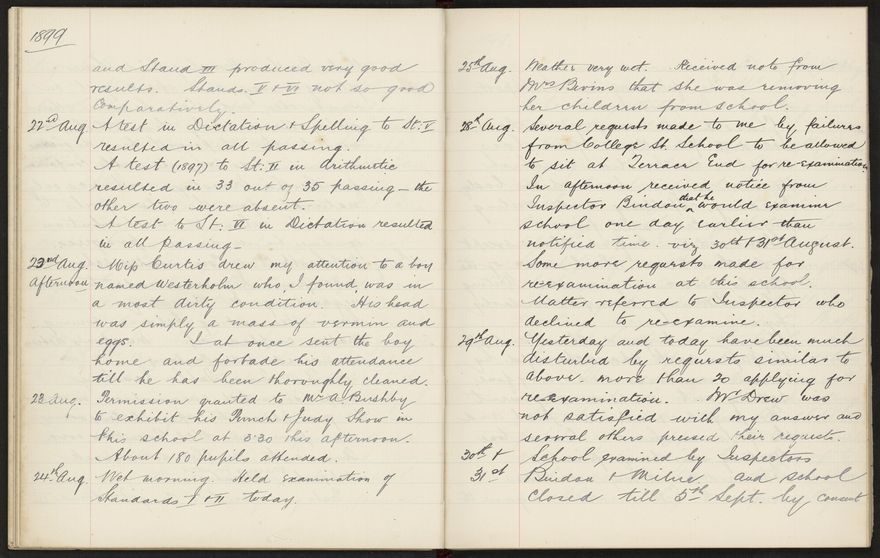 1899
and Stand III produced very good
results. Stands. V & VI not so good
Comparatively.
22nd Aug A test in Dictation & Spelling to St: V
resulted in all passing.
A test (1897) to St: II in Arithmetic
resulted in 33 out of 35 passing – the
other two were absent.
A test to St. VI in Dictation resulted
in all passing –
22nd Aug. Miss Curtis drew my attention to a boy
afternoon named Westerholm who, I found, was in
a most dirty condition. His head
was simply a mass of vermin and
eggs. I at once sent the boy
home and forbade his attendance
till he has been thoroughly cleaned.
23 Aug. Permission granted to Mr A. Bushby
to exhibit his Punch & Judy Show in
this school at 3.30 this afternoon.
About 180 pupils attended.
24th Aug Wet morning. Held Examination of
Standards I & II today.
25th Aug. Weather very wet. Received note from
Mrs Bevins that she was removing
her children from school.
28th Aug. Several requests made to me by failures
from College St. School to be allowed
to sit at Terrace End for re-examination.
In afternoon received notice from
Inspector Bindon that he would examine
school one day earlier than
notified time. viz 30th & 31st August.
Some more requests made for
re-examination at this school.
Matter referred to Inspector who
declined to re-examine.
29th Aug. Yesterday and today have been much
disturbed by requests similar to
above. more than 20 applying for
re-examination. Mr Drew was
not satisfied with my answer and
several others pressed their requests.
30th & School examined by Inspectors
31st Bindon & Milne and school
closed till 5th Sept. by consent